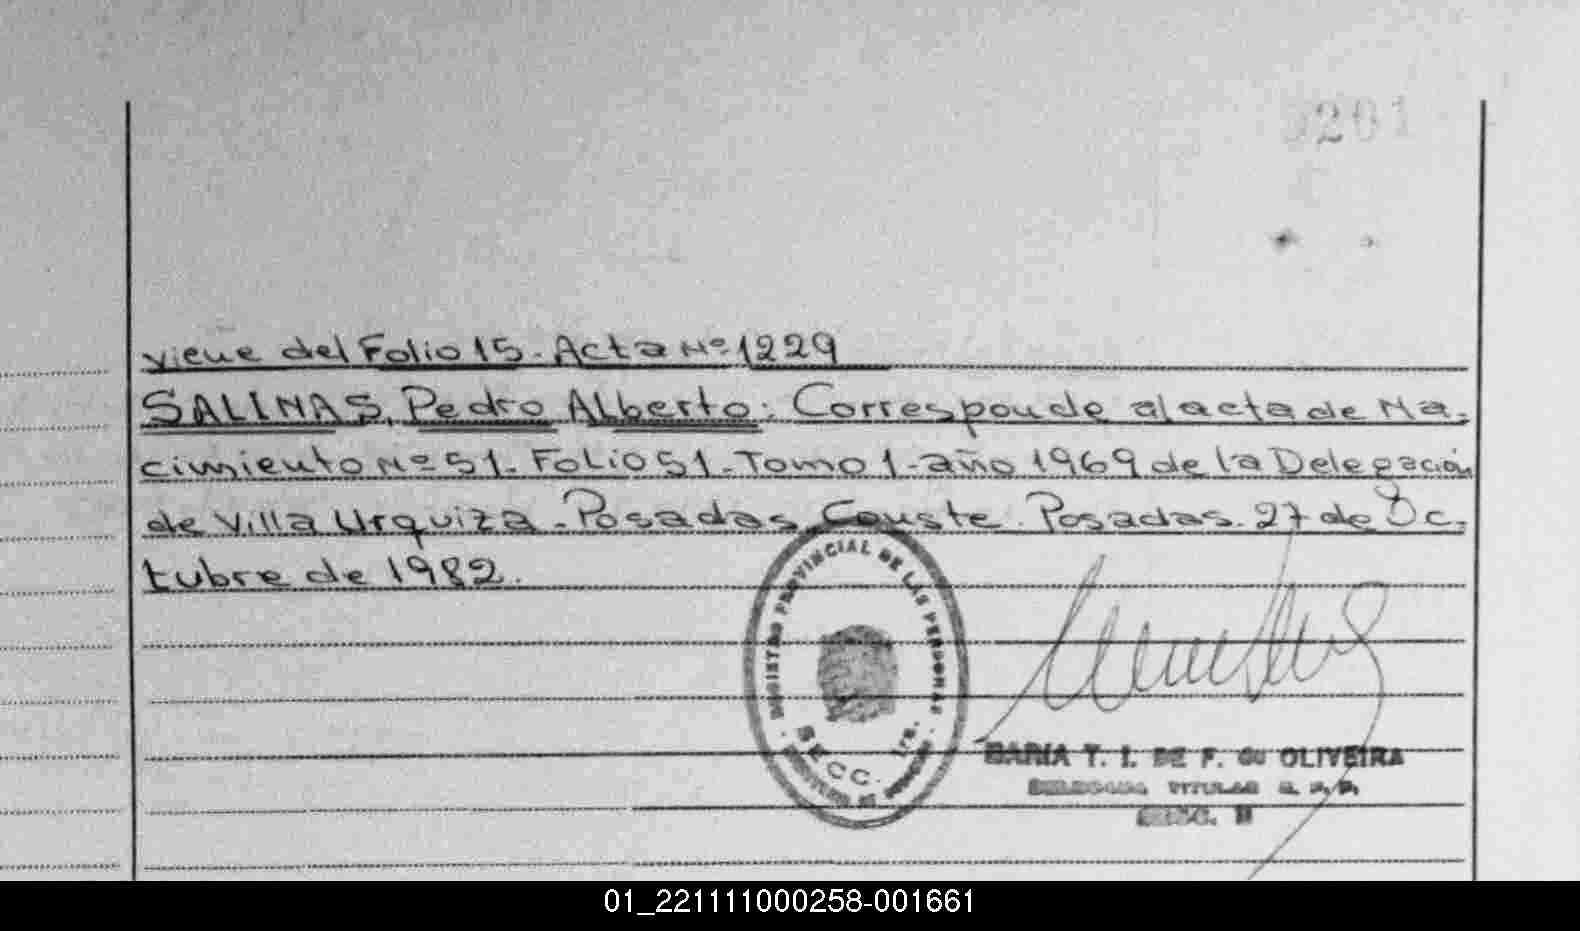 201
viene del Folio 15-Acta Nº 1229
SALINAS, Pedro Alberto: Corresponde al acta de Na-
cimiento Nº 51-Folio 51-Tomo 1-año 1969 de la Delegación
de Villa Urquiza-Posadas. Conste. Posadas. 27 de Oc-
tubre de 1982.
REGISTRO PROVINCIAL DE LAS PERSONAS
SECC. 1ra.
MARIA T. I. DE F. de OLIVEIRA
TITULAR R. P. P.
SECC.
01_221111000258-001661